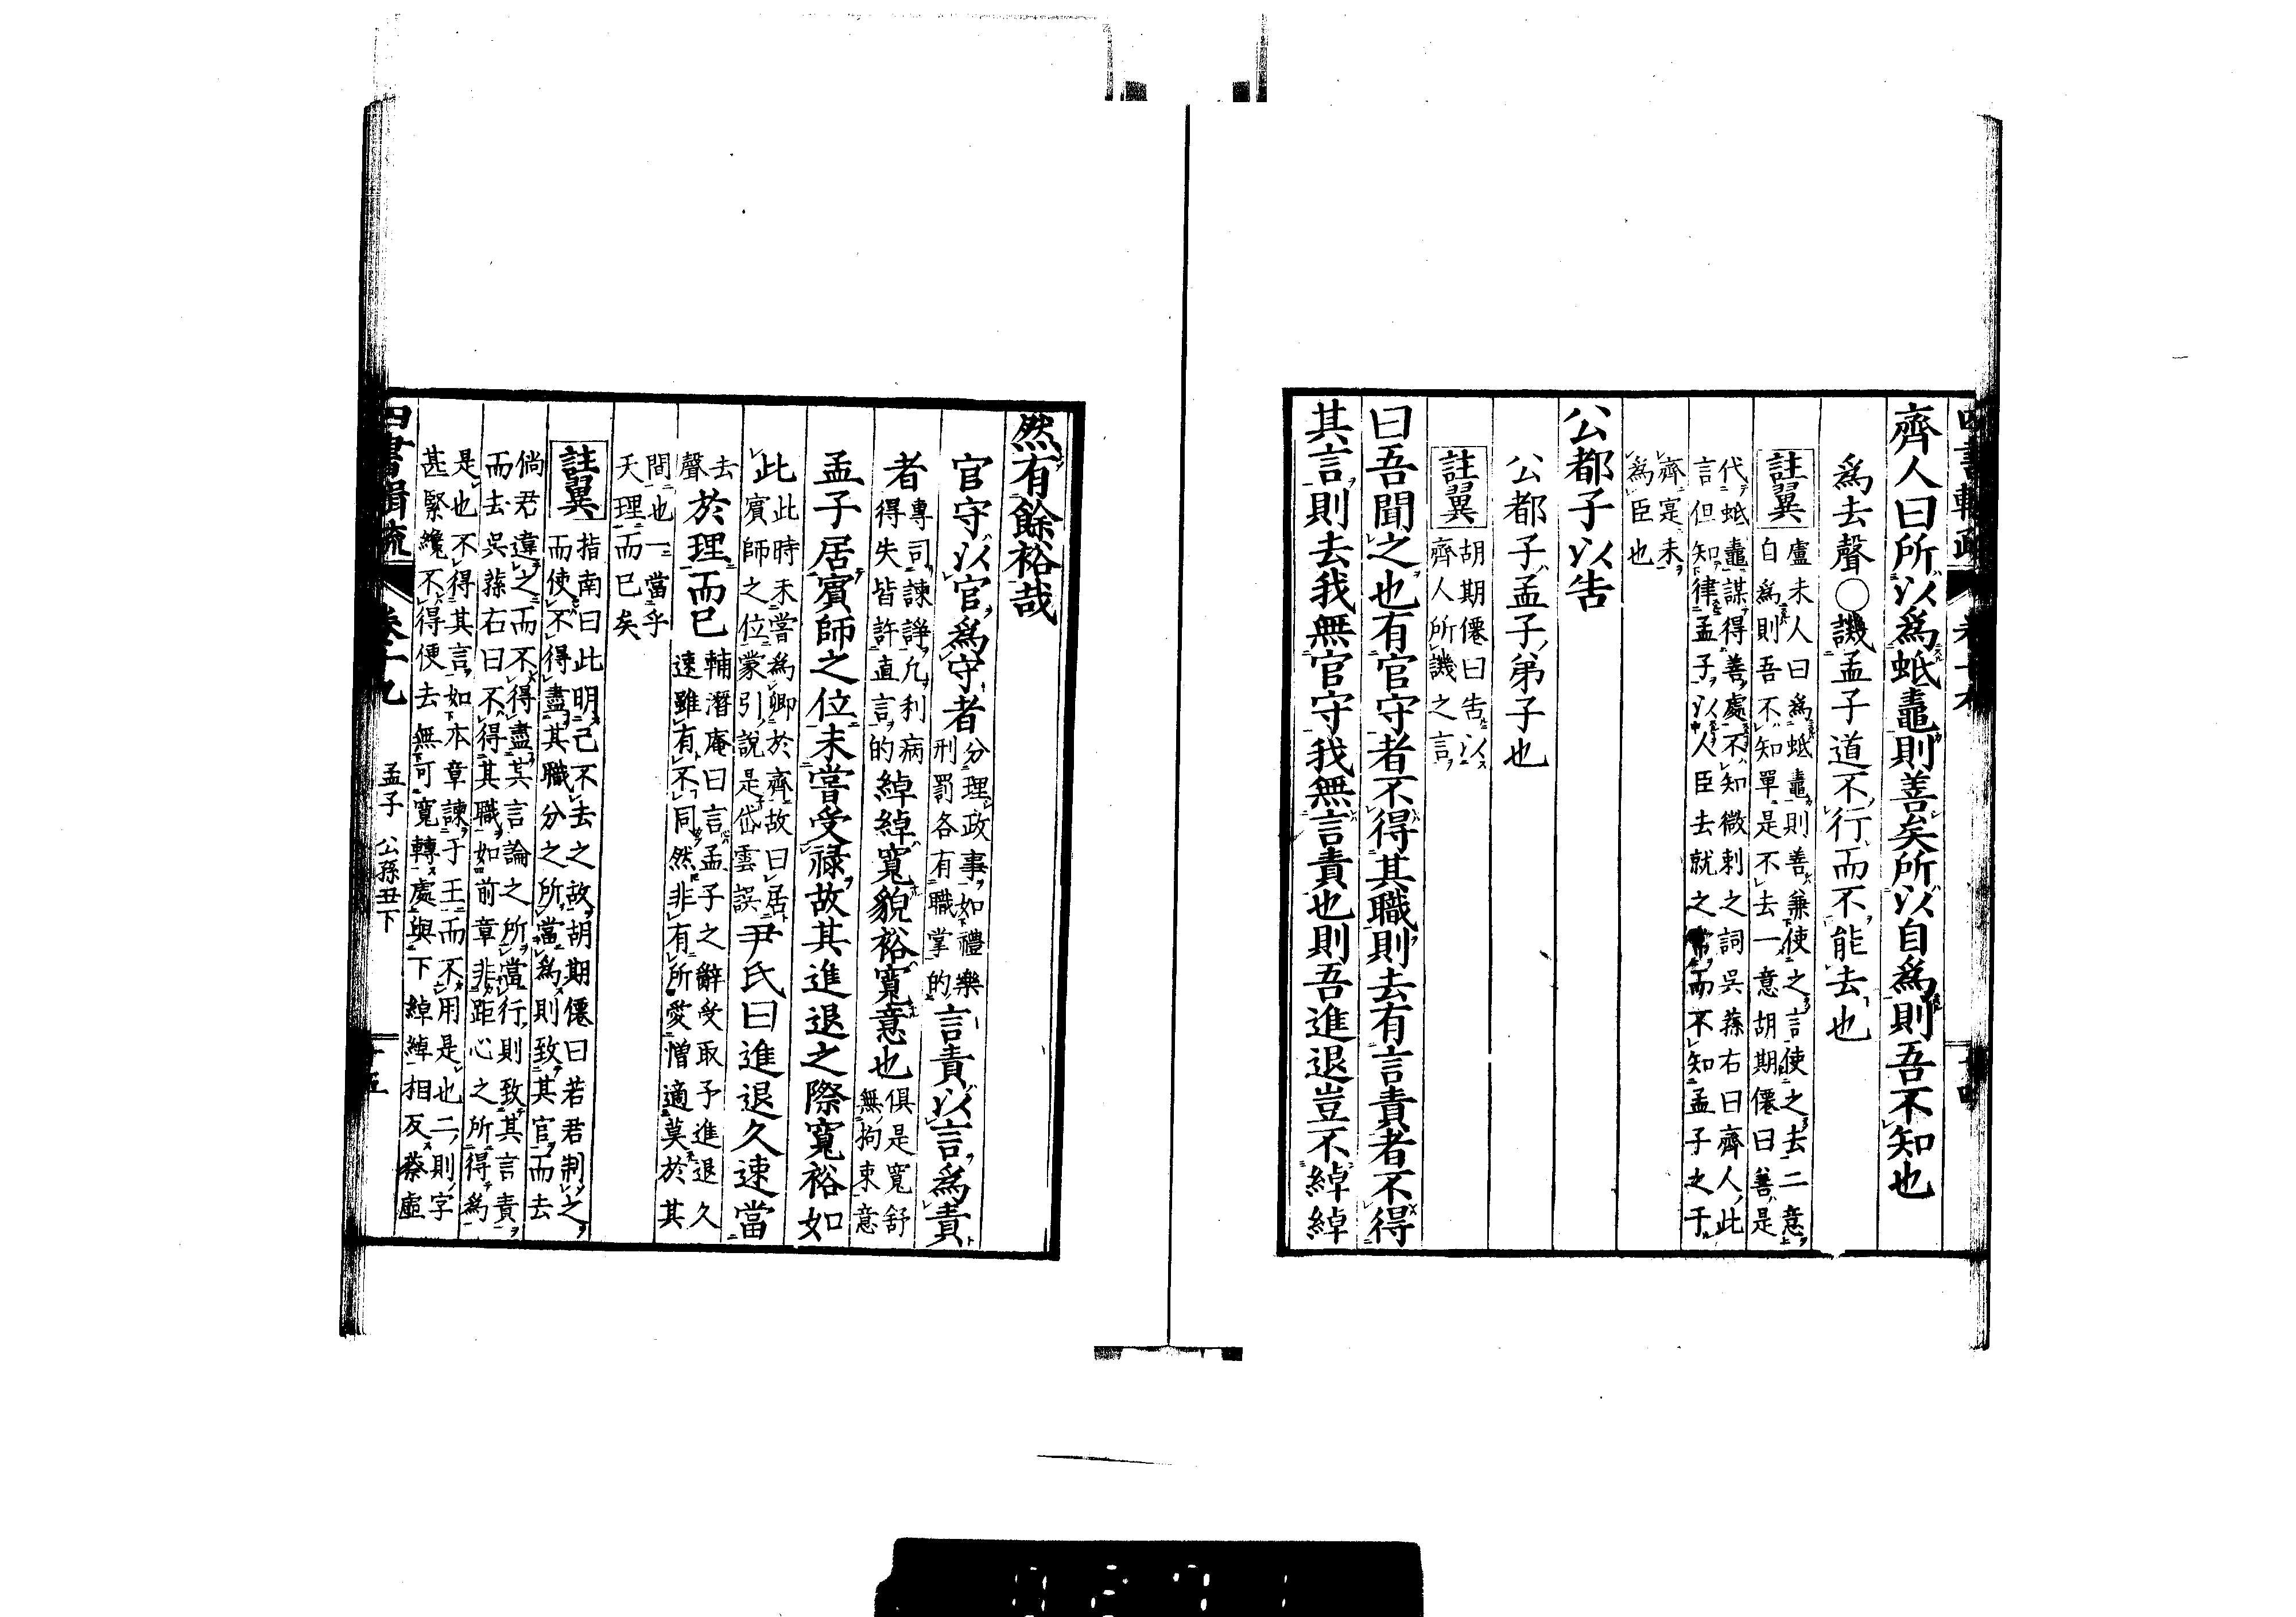 齊人曰所以爲蚳鼃則善矣所以自爲則吾不知也
爲去聲○譏孟子道不行而不能去也
註翼
盧未人曰爲蚳鼃則善兼使之言使之去二意
自爲則吾不知單是不去一意胡期僊曰善是
代蚳鼃謀得善處不知微刺之詞呉蓀右曰齊人此
言但知律孟子以人臣去就之常而不知孟子之于
齊寔未
爲臣也
公都子以告
公都子孟子弟子也
註翼
胡期僊曰告以
齊人所譏之言
曰吾聞之也有官守者不得其職則去有言責者不得
其言則去我無官守我無言責也則吾進退豈不綽綽
然有餘裕哉
官守以官爲守者
分理政事如禮樂
刑罰各有職掌的
言責以言爲責
者
專司諫諍凡利病
得失皆許直言的
綽綽寬貌裕寬意也
俱是寬舒
無拘束意
孟子居賓師之位未嘗受祿故其進退之際寬裕如
此
此時未嘗爲卿於齊故曰居
賓師之位蒙引說是岱雲誤
尹氏曰進退久速當
去
聲
於理而已
輔潛庵曰言孟子之辭受取予進退久
速雖有不同然非有所愛憎適莫於其
間也一當乎
天理而已矣
註翼
指南曰此明己不去之故胡期僊曰若君制之
而使不得盡其職分之所當爲則致其官而去
倘君違之而不得盡其言論之所當行則致其言責
而去呉蓀右曰不得其職如前章非距心之所得爲
是也不得其言如本章諫于王而不用是也二則字
甚緊纔不得便去無可寬轉處與下綽綽相反蔡虛
四書輯疏 卷十九 孟子 公孫丑下 十五